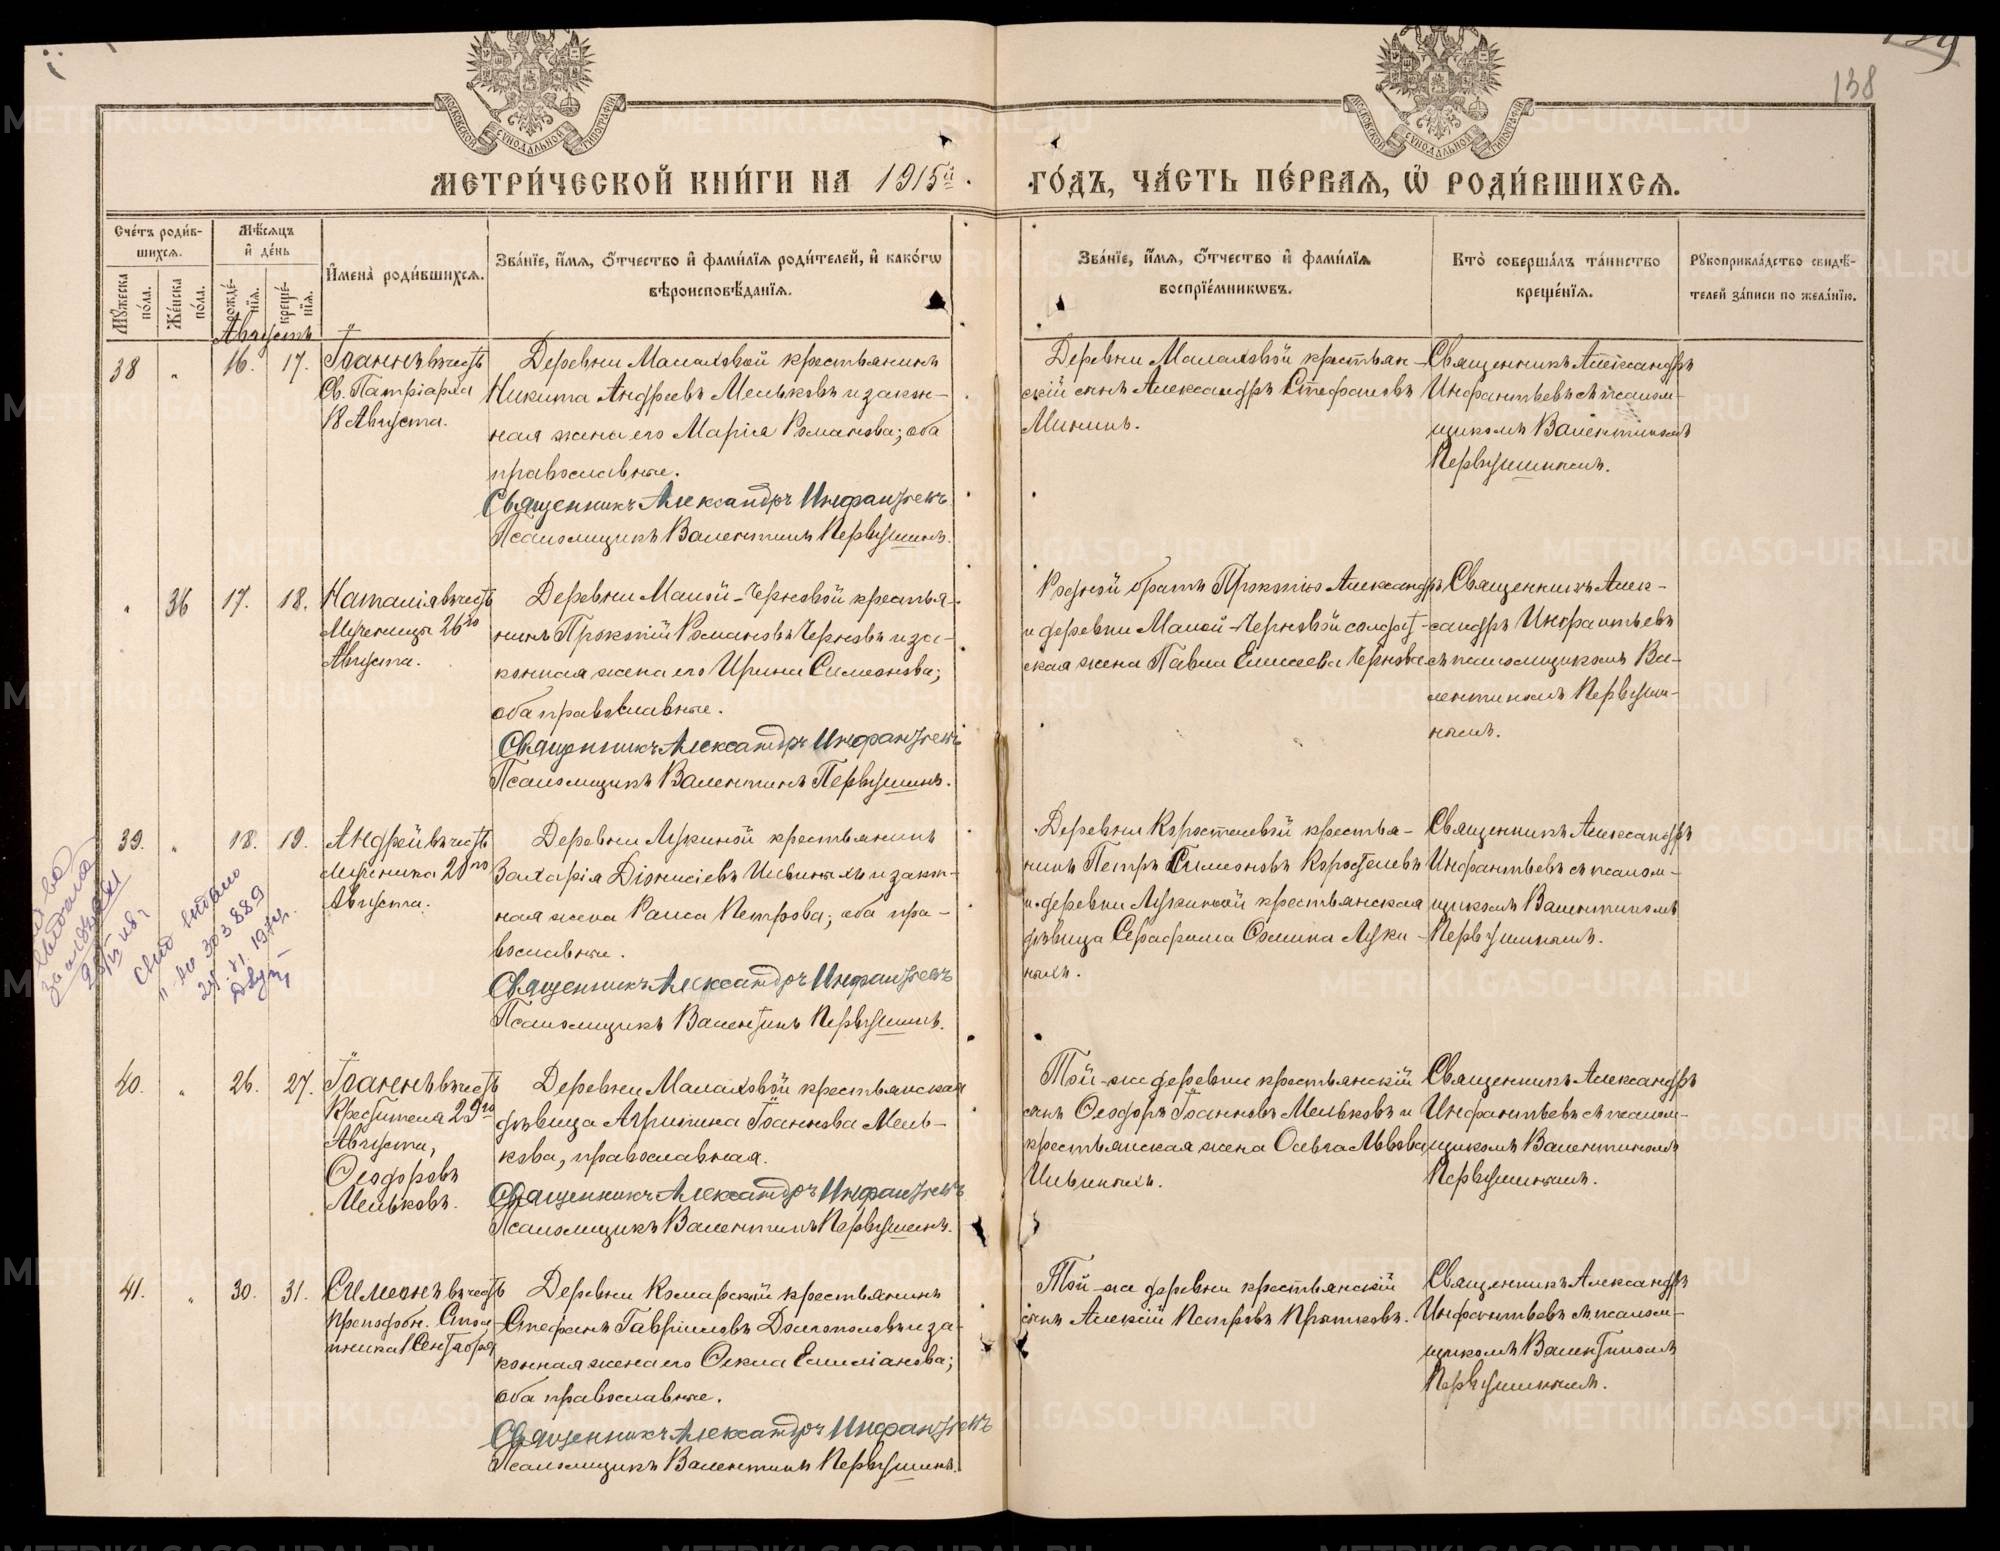 138
МОСКОВСКОЙ СѴНОДАЛЬНОЙ ТИПОГРАФІИ
МОСКОВСКОЙ СѴНОДАЛЬНОЙ ТИПОГРАФІИ
МЕТРИ́ЧЕСКОЙ КНИ́ГИ НА 1915й
ГО́ДЪ, ЧА́СТЬ ПЕ́РВАѦ, Ѡ҆ РОДИ́ВШИХСѦ.
Сче́тъ роди́в-
шихсѧ.
Мꙋ́жеска по́ла.
Же́нска по́ла.
Мѣ́сѧцъ
и҆ де́нь
рожде́-
нїѧ.
креще́-
нїѧ.
И҆мена̀ роди́вшихсѧ.
Зва́нїе, и҆́мѧ, ѻ҆́тчество и҆ фами́лїѧ роди́телей, и҆ како́гѡ
вѣроисповѣ́данїѧ.
Зва́нїе, и҆́мѧ, ѻ҆́тчество и҆ фами́лїѧ
воспрїе́мникѡвъ.
Кто̀ соверша́лъ та́инство
креще́нїѧ.
Рꙋкоприкла́дство свидѣ́-
телей за́писи по жела́нїю.
Августъ
38 " 16. 17.
Іоаннъ въ честь
Св. Патріарха
18 Августа.
Деревни Малаховой крестьянинъ
Никита Андреевъ Мельковъ и закон-
ная жена его Марія Романова; оба
православные.
Священникъ Александръ Инфантьевъ
Псаломщикъ Валентинъ Первушинъ.
Деревни Малаховой крестьян-
скій сынъ Александръ Стефановъ
Мининъ.
Священникъ Александръ
Инфантьевъ съ псалом-
щикомъ Валентиномъ
Первушинымъ.
" 36 17. 18.
Наталія въ честь
Мученицы 26го
Августа.
Деревни Малой-Черновой крестья-
нинъ Прокопій Романовъ Черновъ и за-
конная жена его Ирина Симеонова;
оба православные.
Священникъ Александръ Инфантьевъ
Псаломщикъ Валентинъ Первушинъ.
Родной братъ Прокопію Александръ
и деревни Малой-Черновой солдат-
ская жена Павла Елисеева Чернова
Священникъ Алек-
сандръ Инфантьевъ
съ псаломщикомъ Ва-
лентиномъ Первуши-
нымъ.
39. " 18. 19.
Андрей въ честь
мученика 20го
Августа.
Деревни Лукиной крестьянинъ
Захарія Діонисіевъ Ившиныхъ и закон-
ная жена Раиса Петрова; оба пра-
вославные.
Священникъ Александръ Инфантьевъ
Псаломщикъ Валентинъ Первушинъ.
Деревни Коростелевой крестья-
нинъ Петръ Симеоновъ Коростелевъ
и деревни Лукиной крестьянская
дѣвица Серафима Фомина Луки-
ныхъ.
Священникъ Александръ
Инфантьевъ съ псалом-
щикомъ Валентиномъ
Первушинымъ.
выдано
№ 303889
40. " 26. 27.
Іоаннъ въ честь
Крестителя 29го
Августа,
Ѳеодоровъ
Мельковъ.
Деревни Малаховой крестьянская
дѣвица Агрипина Іоаннова Мель-
кова, православная.
Священникъ Александръ Инфантьевъ
Псаломщикъ Валентинъ Первушинъ.
Той-же деревни крестьянскій
сынъ Ѳеодоръ Іоанновъ Мельковъ и
крестьянская жена Ольга Львова
Ившиныхъ.
Священникъ Александръ
Инфантьевъ съ псалом-
щикомъ Валентиномъ
Первушинымъ.
41. " 30. 31.
Симеонъ въ честь
преподобн. Столп-
ника 1 Сентября
Деревни Комарской крестьянинъ
Стефанъ Гавріиловъ Долгополовъ и за-
конная жена его Ѳекла Емиліанова;
оба православные.
Священникъ Александръ Инфантьевъ
Псаломщикъ Валентинъ Первушинъ.
Той-же деревни крестьянскій
сынъ Алексій Петровъ Прытковъ.
Священникъ Александръ
Инфантьевъ съ псалом-
щикомъ Валентиномъ
Первушинымъ.
METRIKI.GASO-URAL.RU